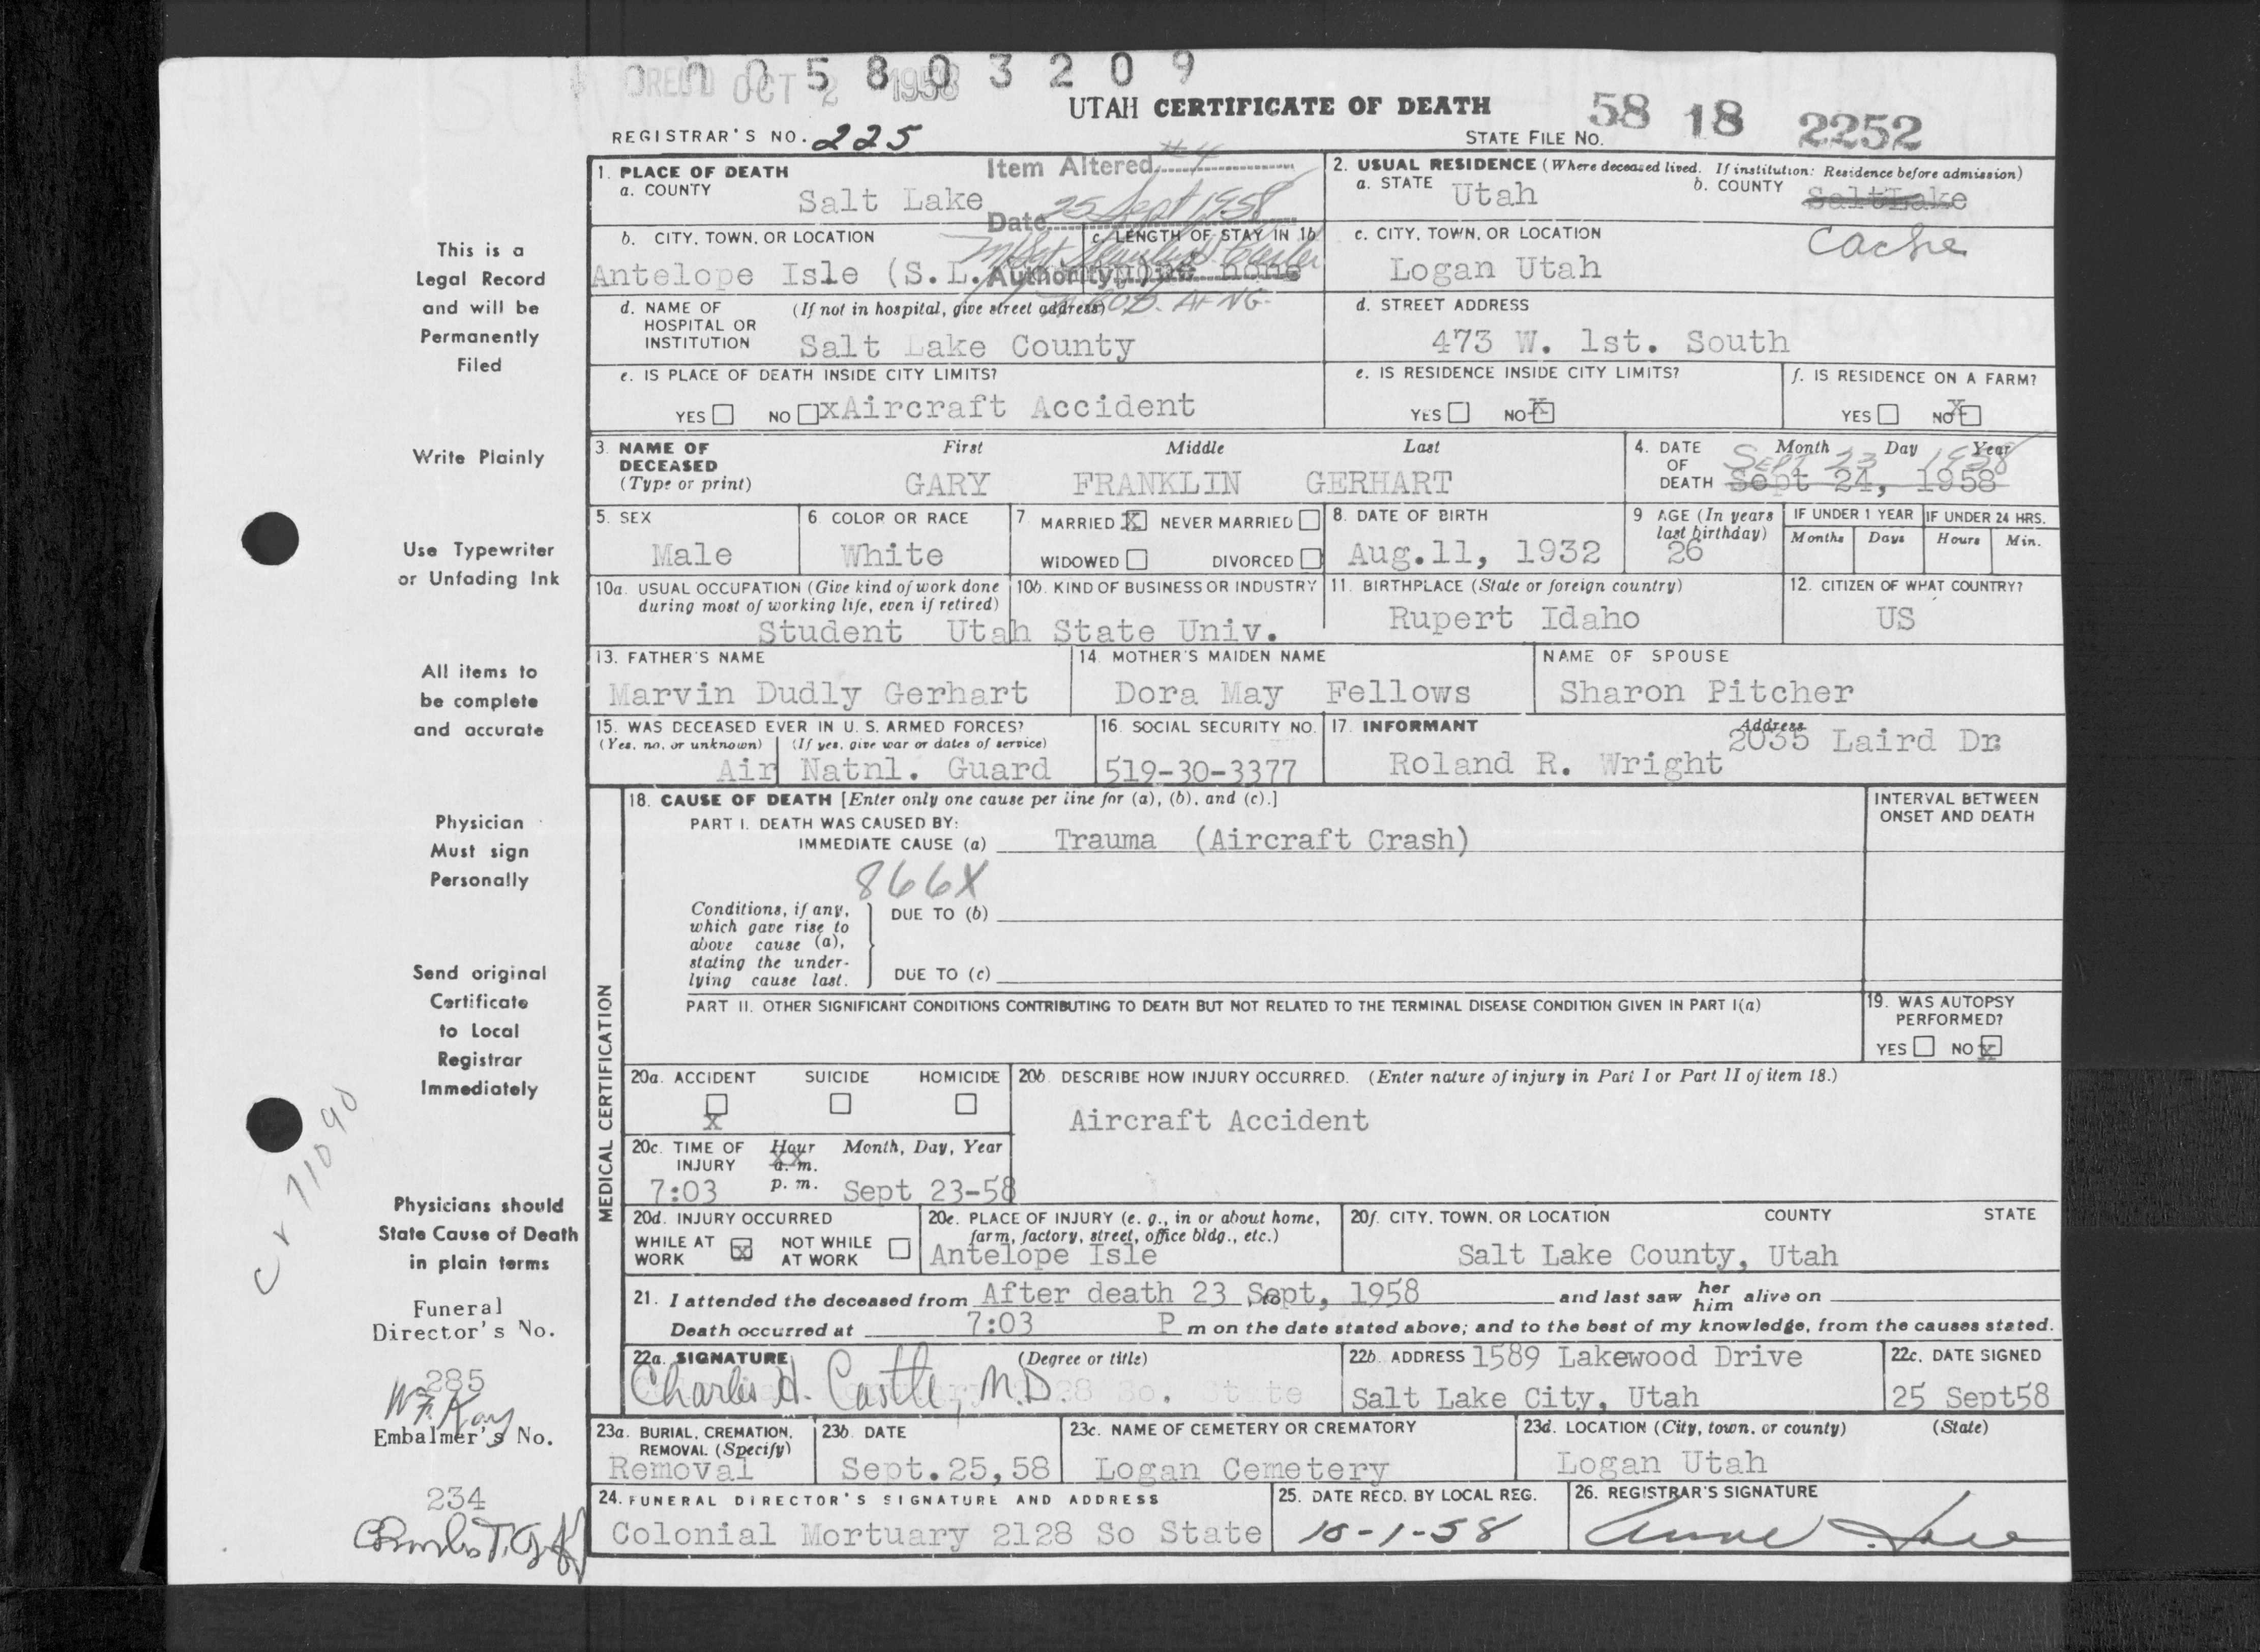 0005803209
REC'D OCT 2 1958
UTAH CERTIFICATE OF DEATH
58 18 2252
REGISTRAR'S NO. 225
STATE FILE NO.
This is a
Legal Record
and will be
Permanently
Filed
Write Plainly
Use Typewriter
or Unfading Ink
All items to
be complete
and accurate
Physician
Must sign
Personally
Send original
Certificate
to Local
Registrar
Immediately
Physicians should
State Cause of Death
in plain terms
Funeral
Director's No.
285
Embalmer's No.
234
1. PLACE OF DEATH
a. COUNTY
Salt Lake
Item Altered #4
Date 25 Sept 1958
Authority
2. USUAL RESIDENCE (Where deceased lived. If institution: Residence before admission)
a. STATE Utah b. COUNTY Salt Lake
Cache
b. CITY, TOWN, OR LOCATION
Antelope Isle (S.L.
c. LENGTH OF STAY IN 1b
none
c. CITY, TOWN, OR LOCATION
Logan Utah
d. NAME OF HOSPITAL OR INSTITUTION (If not in hospital, give street address)
Salt Lake County
d. STREET ADDRESS
473 W. 1st. South
e. IS PLACE OF DEATH INSIDE CITY LIMITS?
YES NO xAircraft Accident
e. IS RESIDENCE INSIDE CITY LIMITS?
YES NO X
f. IS RESIDENCE ON A FARM?
YES NO X
3. NAME OF DECEASED (Type or print)
First Middle Last
GARY FRANKLIN GERHART
4. DATE OF DEATH
Month Day Year
Sept 23 1958
Sept 24, 1958
5. SEX
Male
6. COLOR OR RACE
White
7. MARRIED X NEVER MARRIED
WIDOWED DIVORCED
8. DATE OF BIRTH
Aug.11, 1932
9 AGE (In years last birthday)
26
IF UNDER 1 YEAR
Months Days
IF UNDER 24 HRS.
Hours Min.
10a. USUAL OCCUPATION (Give kind of work done during most of working life, even if retired)
10b. KIND OF BUSINESS OR INDUSTRY
Student Utah State Univ.
11. BIRTHPLACE (State or foreign country)
Rupert Idaho
12. CITIZEN OF WHAT COUNTRY?
US
13. FATHER'S NAME
Marvin Dudly Gerhart
14. MOTHER'S MAIDEN NAME
Dora May Fellows
NAME OF SPOUSE
Sharon Pitcher
15. WAS DECEASED EVER IN U. S. ARMED FORCES?
(Yes, no, or unknown) (If yes, give war or dates of service)
Air Natnl. Guard
16. SOCIAL SECURITY NO.
519-30-3377
17. INFORMANT Address
Roland R. Wright 2035 Laird Dr
MEDICAL CERTIFICATION
18. CAUSE OF DEATH [Enter only one cause per line for (a), (b), and (c).]
PART I. DEATH WAS CAUSED BY:
IMMEDIATE CAUSE (a) Trauma (Aircraft Crash)
866X
Conditions, if any, which gave rise to above cause (a), stating the underlying cause last.
DUE TO (b)
DUE TO (c)
INTERVAL BETWEEN ONSET AND DEATH
PART II. OTHER SIGNIFICANT CONDITIONS CONTRIBUTING TO DEATH BUT NOT RELATED TO THE TERMINAL DISEASE CONDITION GIVEN IN PART I(a)
19. WAS AUTOPSY PERFORMED?
YES NO X
20a. ACCIDENT SUICIDE HOMICIDE
X
20b. DESCRIBE HOW INJURY OCCURRED. (Enter nature of injury in Part I or Part II of item 18.)
Aircraft Accident
20c. TIME OF INJURY Hour a. m. p. m. Month, Day, Year
7:03 Sept 23-58
20d. INJURY OCCURRED
WHILE AT WORK X NOT WHILE AT WORK
20e. PLACE OF INJURY (e. g., in or about home, farm, factory, street, office bldg., etc.)
Antelope Isle
20f. CITY, TOWN, OR LOCATION COUNTY STATE
Salt Lake County, Utah
21. I attended the deceased from After death 23 Sept, 1958 to and last saw her him alive on
Death occurred at 7:03 P m on the date stated above; and to the best of my knowledge, from the causes stated.
22a. SIGNATURE (Degree or title)
Charles H. Castle, M.D.
22b. ADDRESS 1589 Lakewood Drive
Salt Lake City, Utah
22c. DATE SIGNED
25 Sept58
23a. BURIAL, CREMATION, REMOVAL (Specify)
Removal
23b. DATE
Sept.25,58
23c. NAME OF CEMETERY OR CREMATORY
Logan Cemetery
23d. LOCATION (City, town, or county) (State)
Logan Utah
24. FUNERAL DIRECTOR'S SIGNATURE AND ADDRESS
Colonial Mortuary 2128 So State
25. DATE RECD. BY LOCAL REG.
10-1-58
26. REGISTRAR'S SIGNATURE